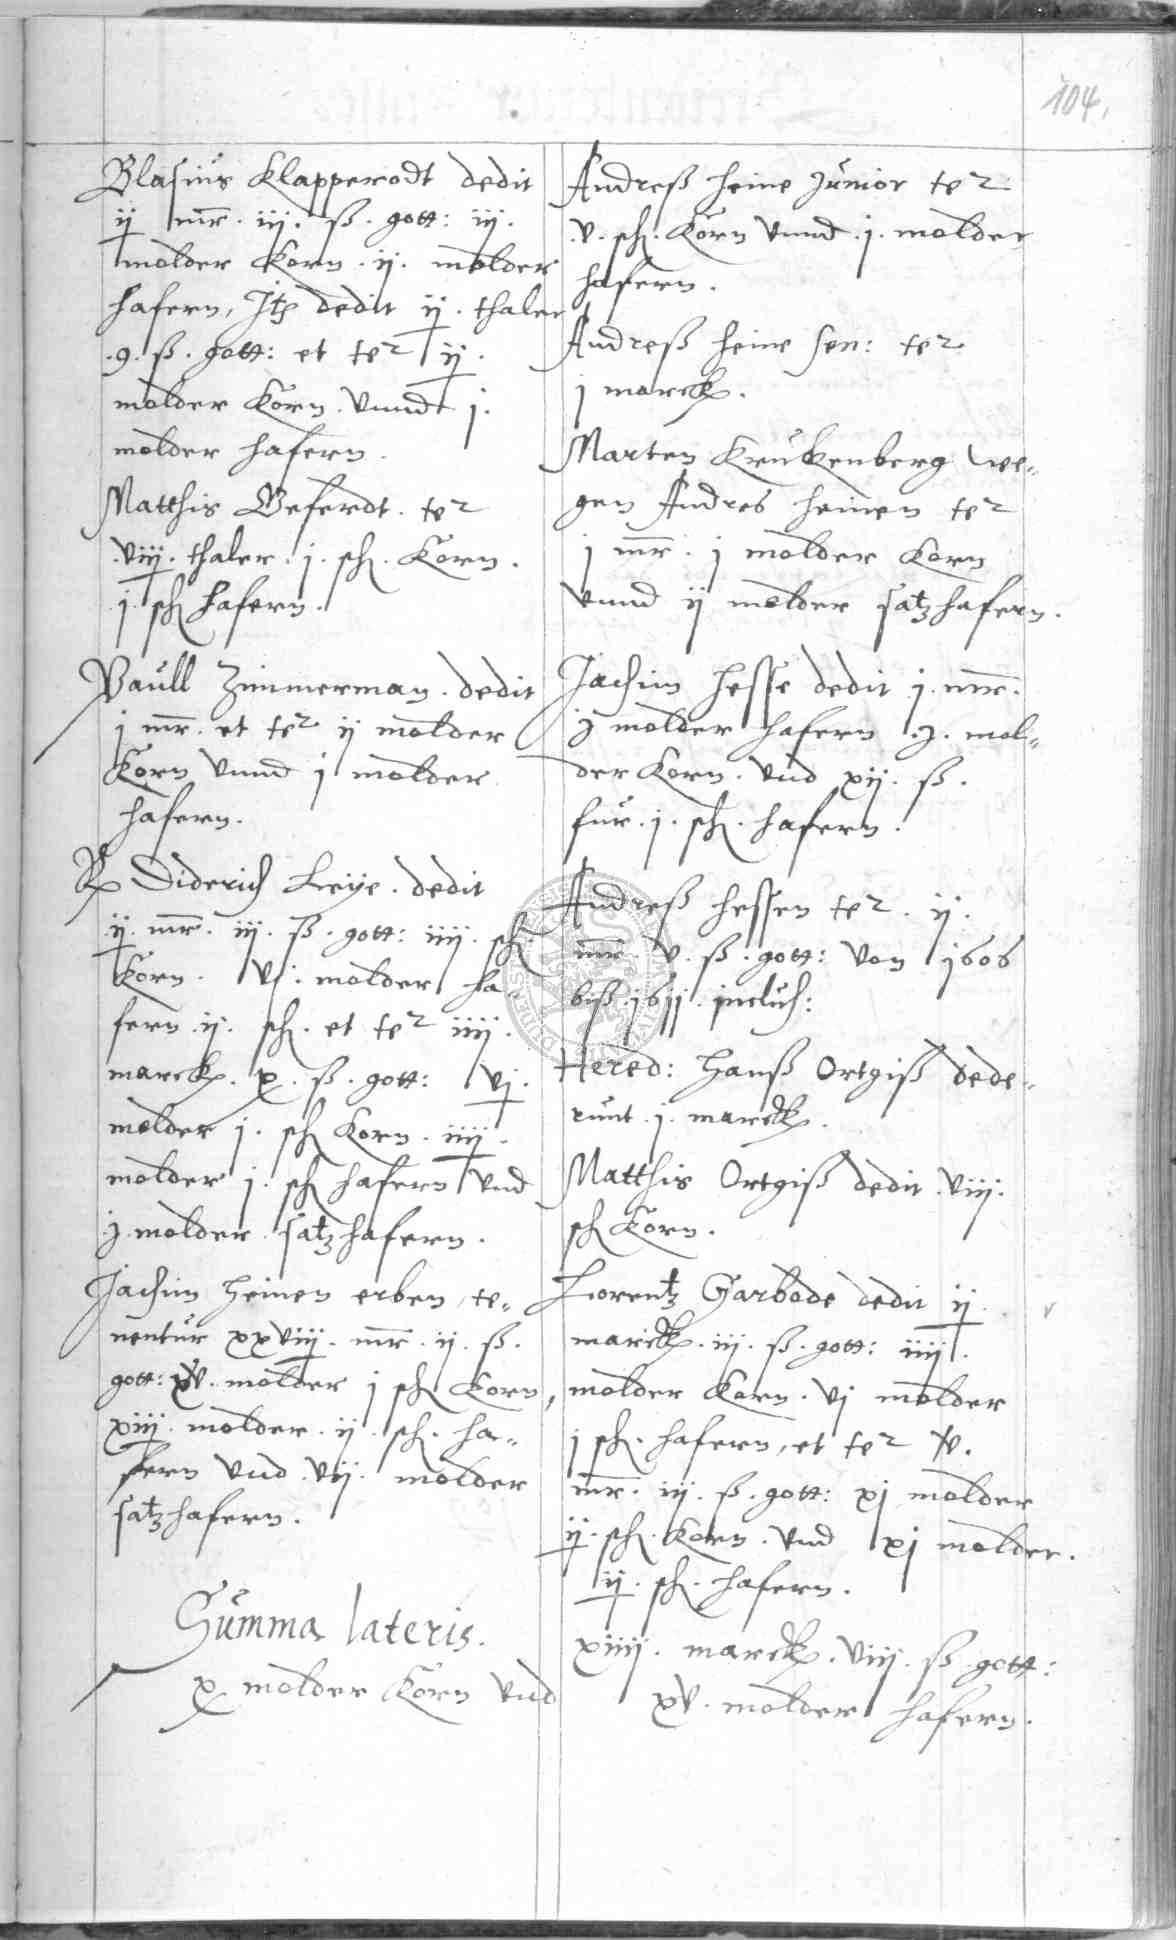 104.
Blasius Klapperodt dedit
ij mr. iij. ß. gott: iij.
molder Korn. ij. molder
hafern, Itē dedit ij. thaler
.9. ß. gott: et tet2 ij.
molder Korn. vnnd j.
molder hafern.
Matthis Geferdt. tet2
.viij. thaler. j. sch. Korn.
j. sch hafern.
Paull Zimmerman. dedit
j mr. et tet2 ij molder
Korn vnnd j molder
hafern.
Diderich Leije. dedit
ij. mr. iij. ß. gott: iiij. sch.
Korn. vj. molder ha-
fern ij. sch. et tet2 iiij.
marck. x. ß. gott: vj.
molder j. sch Korn. iiij.
molder j. sch hafern vnd
j. molder satzhafern.
Jachim Heinen erben, te-
nentur xxviij. mr. ij. ß.
gott: xv. molder j sch Korn,
xiij. molder. ij. sch. ha-
fern vnd vij. molder
satzhafern.
Summa lateris.
x molder Korn vnd
Andreß Heine Junior tet2
.v. sch. Korn vnnd .j. molder
hafern.
Andreß Heine sen: tet2
j marck.
Marten Kruckenberg we-
gen Andres Heinen tet2
j mr. j molder Korn
vnnd ij molder satzhafern.
Jachim Hesse dedit j. mr.
j molder hafern .j. mol-
der Korn. vnd xij. ß.
fur .j. sch. hafern.
Andreß Hessen tet2. ij.
mr. v. ß. gott: von 1606
biß .1611. incluß:
Hered: Hanß Ortgiß dede-
runt .j. marck.
Matthis Ortgiß dedit .viij.
sch Korn.
Lorentz Garbode dedit ij.
marck. iij. ß. gott: iiij.
molder Korn. vj molder
j sch. hafern, et tet2 v.
mr. iij. ß. gott: xj molder
ij. sch. Korn. vnd xj molder.
ij. sch. hafern.
xiiij. marck. viij. ß gott:
xv. molder hafern.